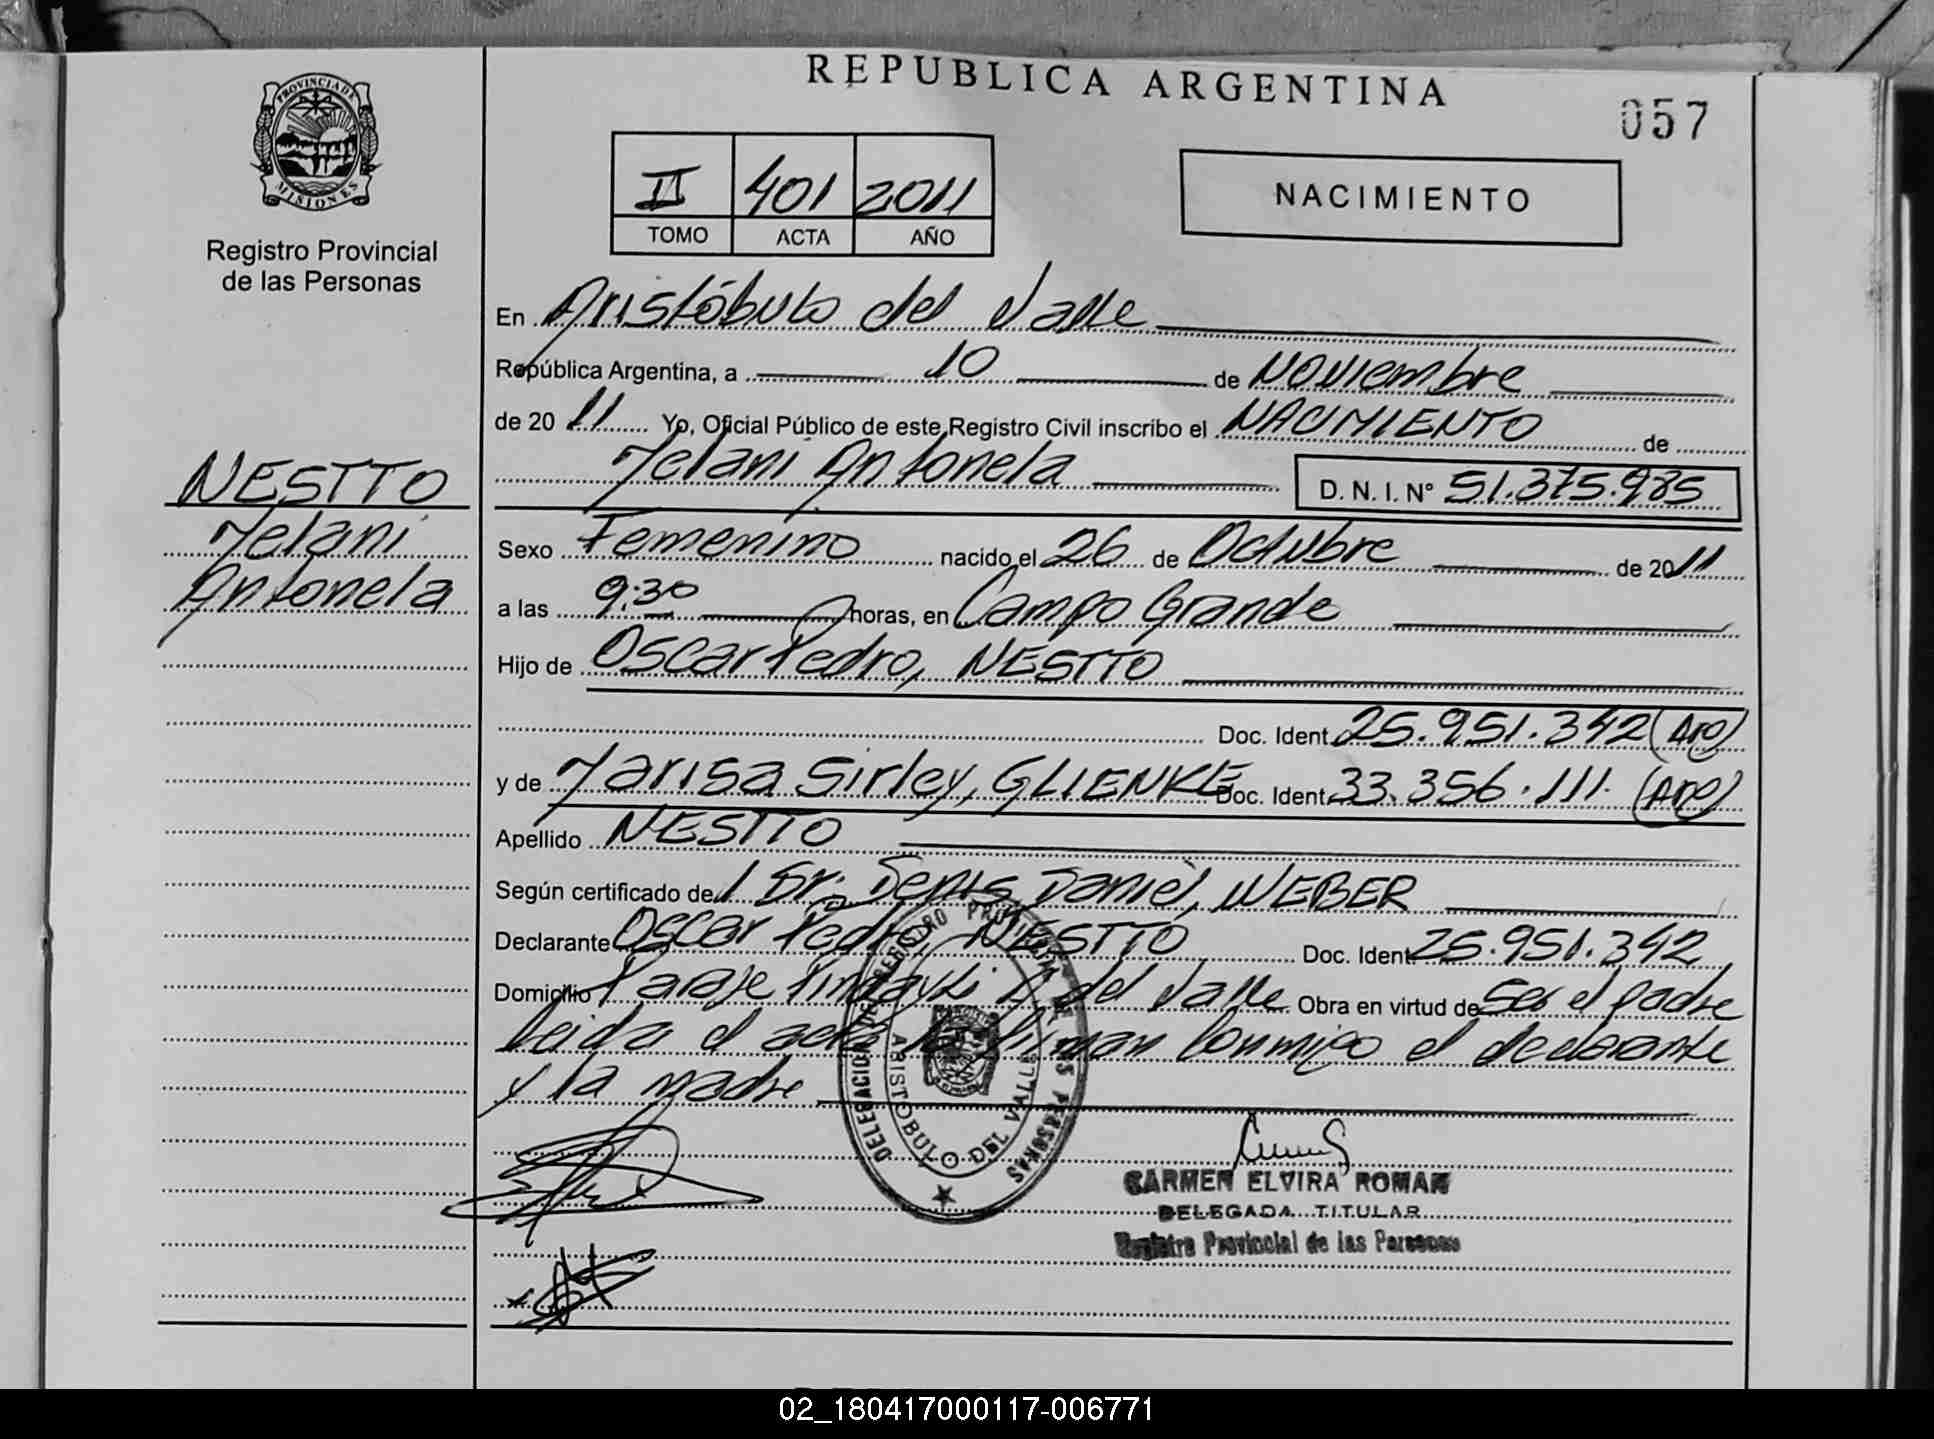 REPUBLICA ARGENTINA
057
PROVINCIA DE MISIONES
Registro Provincial
de las Personas
II 401 2011
TOMO ACTA AÑO
NACIMIENTO
En Aristóbulo del Valle
República Argentina, a 10 de Noviembre
de 20 11 Yo, Oficial Público de este Registro Civil inscribo el NACIMIENTO de
Melani Antonela D. N. I. Nº 51.375.985
NESTTO
Melani
Antonela
Sexo Femenino nacido el 26 de Octubre de 2011
a las 9:30 horas, en Campo Grande
Hijo de Oscar Pedro, NESTTO
Doc. Ident. 25.951.342 (Arg)
y de Marisa Sirley, GLIENKE Doc. Ident. 33.356.111. (Arg)
Apellido NESTTO
Según certificado de l Dr. Denis Daniel, WEBER
Declarante Oscar Pedro, NESTTO Doc. Ident. 25.951.342
Domicilio Paraje Pindayti A. del Valle Obra en virtud de Ser el padre
Leida el acta la firman conmigo el declarante
y la madre
DELEGACION DE REGISTRO PROVINCIAL DE LAS PERSONAS
ARISTOBULO DEL VALLE
CARMEN ELVIRA ROMAN
DELEGADA TITULAR
Registro Provincial de las Personas
02_180417000117-006771